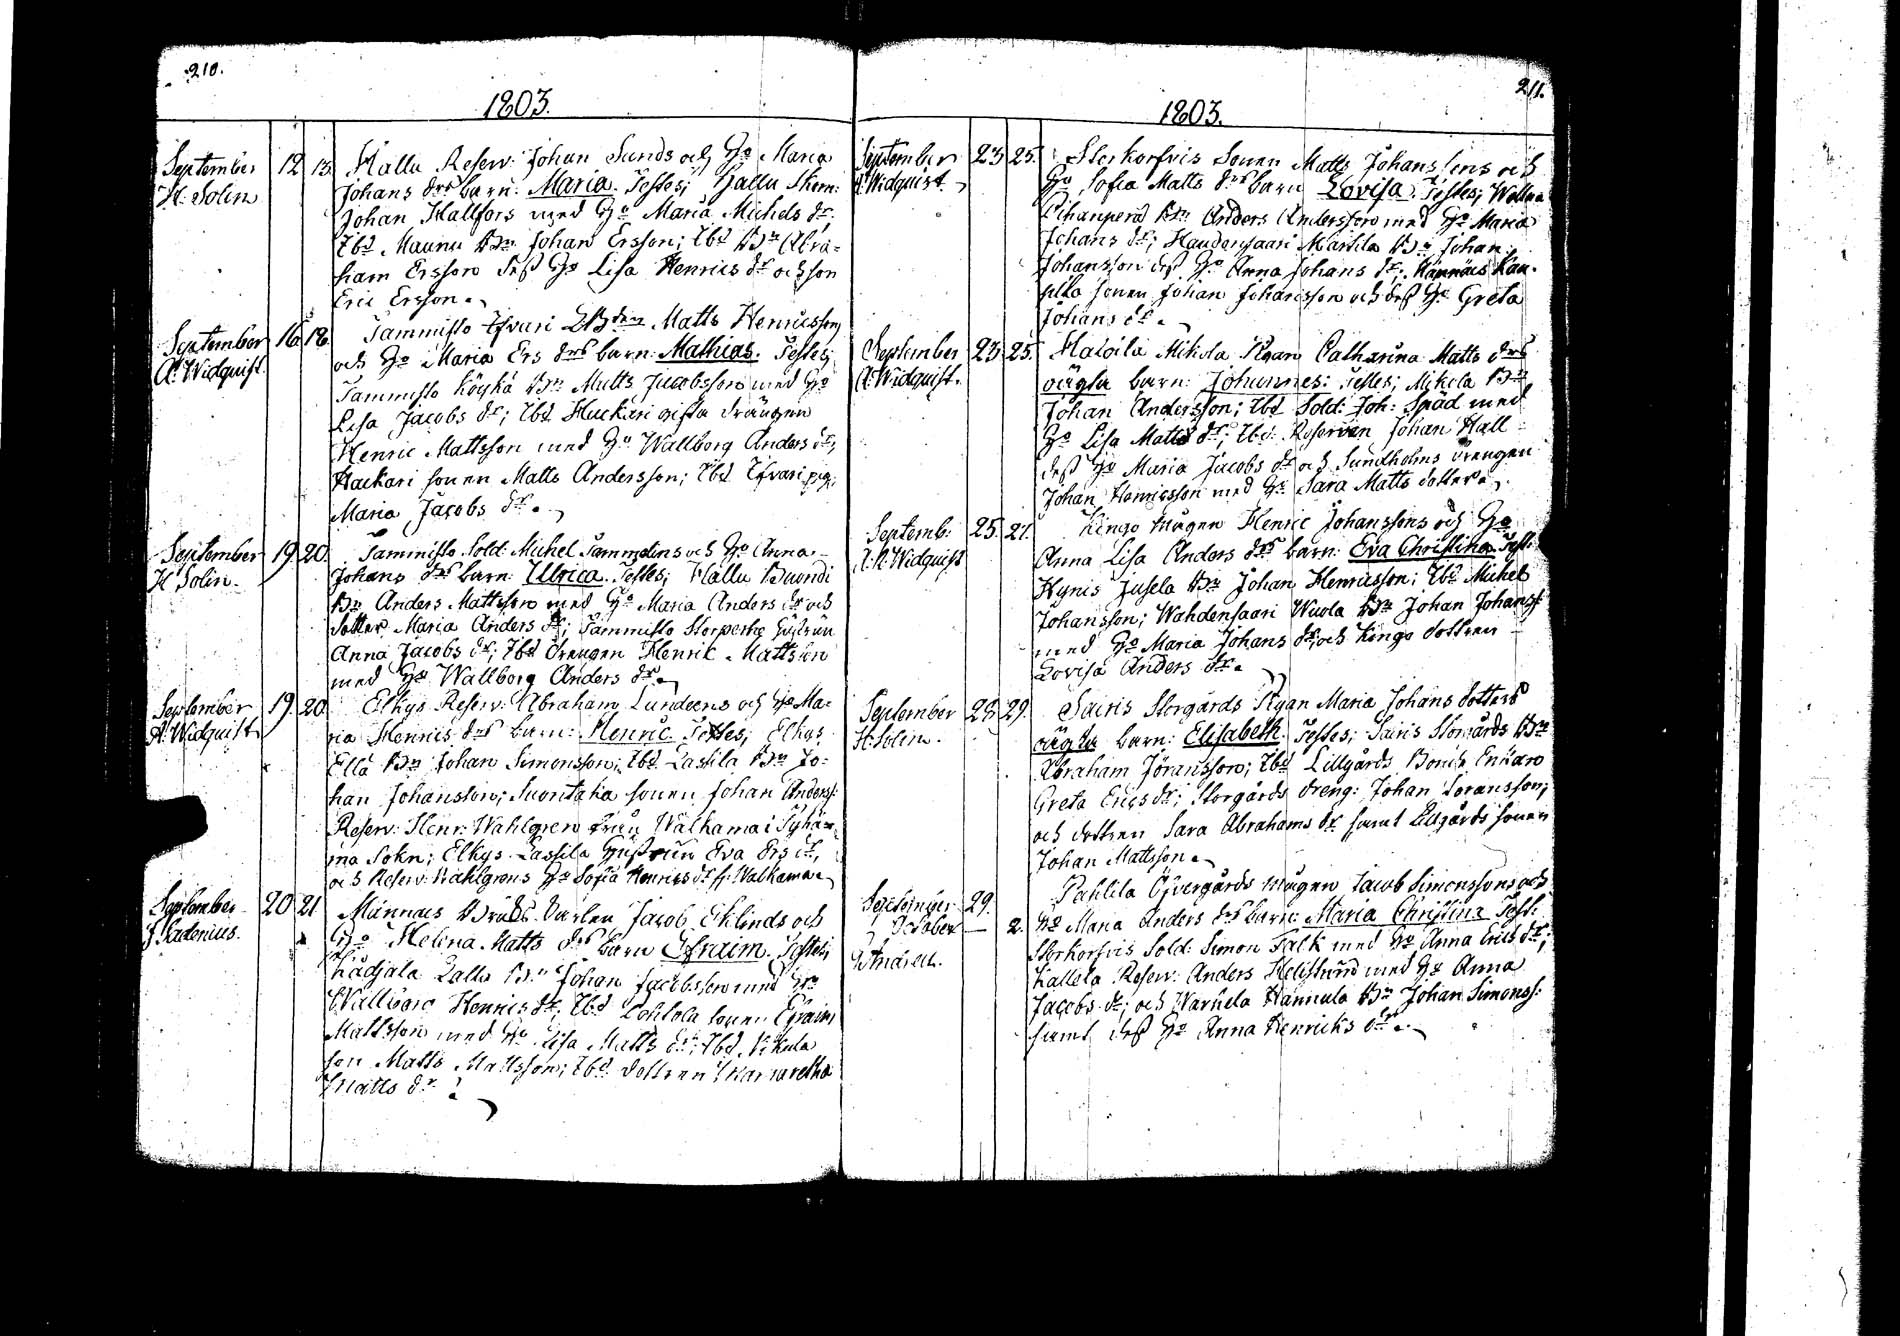 210.
1803.
September 12 13. Hallu Reserv: Johan Sunds och Ho Maria
H. Solin Johans drs barn: Maria. Testes; Hallu Skom:
Johan Hallfors med Ho Maria Michels dr.
Ibd Maunu Bn Johan Ersson; Ibd Bn Abra-
ham Ersson dess Ho Lisa Henrics dr och son
Eric Ersson.
September 16. 18. Tammisto Matts Henricsson
A. Widquist. och Ho Maria Ers drs barn: Mathias. Testes;
Tammisto Köykä Bn Matts Jacobsson med Ho
Lisa Jacobs dr; Ibd Huckari gifta drängen
Henric Mattsson med Ho Wallborg Anders dr,
Hackari sonen Matts Andersson; Ibd pig.
Maria Jacobs dr.
September 19. 20. Tammisto Sold: Michel Tammelins och Ho Anna
H Solin. Johans drs barn: Ulrica. Testes; Hallu Buondi
Bn Anders Mattsson med Ho Maria Anders dr och
dotter Maria Anders dr; Tammisto Storperhe
Anna Jacobs dr; Ibd drengen Henric Mattsson
med Ho Wallborg Anders dr.
September 19. 20. Elkys Reserv: Abraham Lundeens och Ho Ma-
A: Widquist ria Henrics drs barn: Henric. Testes; Elkys
Ellä Bn Johan Simonsson; Ibd Lassila Bn Jo-
han Johansson; Suontaka sonen Johan Anderss:
Reserv: Henr: Wahlgren från Walkama i
ma Sokn; Elkys Lassila Hustrun Eva Ers dr,
och Reserv: Wahlgrens Ho Sofia Henrics dr fr: Walkama.
September 20 21 Männäis Jacob Eklinds och
J. Sadenius. Ho Helena Matts drs barn Efraim. Testes;
Lalla Bn Johan Jacobsson med Ho
Wallborg Henrics dr; Ibd sonen Efraim
Mattsson med Ho Lisa Matts dr; Ibd Nikula
son Matts Mattsson; Ibd dottren Margretha
Matts dr.
211.
1803.
September 23 25. Storkorfvis Sonen Matts Johanssons och
A: Widquist. Ho Sofia Matts drs barn Lovisa. Testes;
Pihanperä Bn Anders Andersson med Ho Maria
Johans dr; Haudensaari Martila Bn Johan
Johansson dess Ho Anna Johans dr; Männäis
sonen Johan Johansson och dess Ho Greta
Johans dr.
September 23. 25. Haloila Mikola Pigan Catharina Matts drs
A: Widquist. oägta barn: Johannes: Testes; Mikola Bn
Johan Andersson; Ibd Sold: Joh: Späd med
Ho Lisa Matts dr; Ibd Reserven Johan Hall
dess Ho Maria Jacobs dr och Sundholms drengen
Johan Henricsson med Ho Sara Matts dotter.
Septemb: 25. 27. Kingo mågen Henric Johanssons och Ho
A: N: Widquist Anna Lisa Anders drs barn: Eva Christina. Test:
Hynis Jusela Bn Johan Henricsson; Ibd Michel
Johansson; Wahdensaari Wuola Bn Johan Johanss:
med Ho Maria Johans dr; och Kingo dottren
Lovisa Anders dr.
September 28. 29. Sairis Storgårds Pigan Maria Johans dotters
H: Solin. oägta barn: Elisabeth. Testes; Sairis Storgårds Bn
Abraham Jöransson; Ibd Lillgårds Bonde Enkan
Greta Erics dr; Storgårds dreng: Johan Joransson;
och dottren Sara Abrahams dr samt Lillgårds sonen
Johan Mattsson.
September 29. Pahlila Öfvergårds mågen Jacob Simonssons och
October — 2. Ho Maria Anders drs barn: Maria Christina Test:
Storkorfvis Sold: Simon Falk med Ho Anna Erics dr;
Kallela Reserv: Anders Helslund med Ho Anna
Jacobs dr; och Waruela Hannula Bn Johan Simonss:
samt dess Ho Anna Henricks dr.